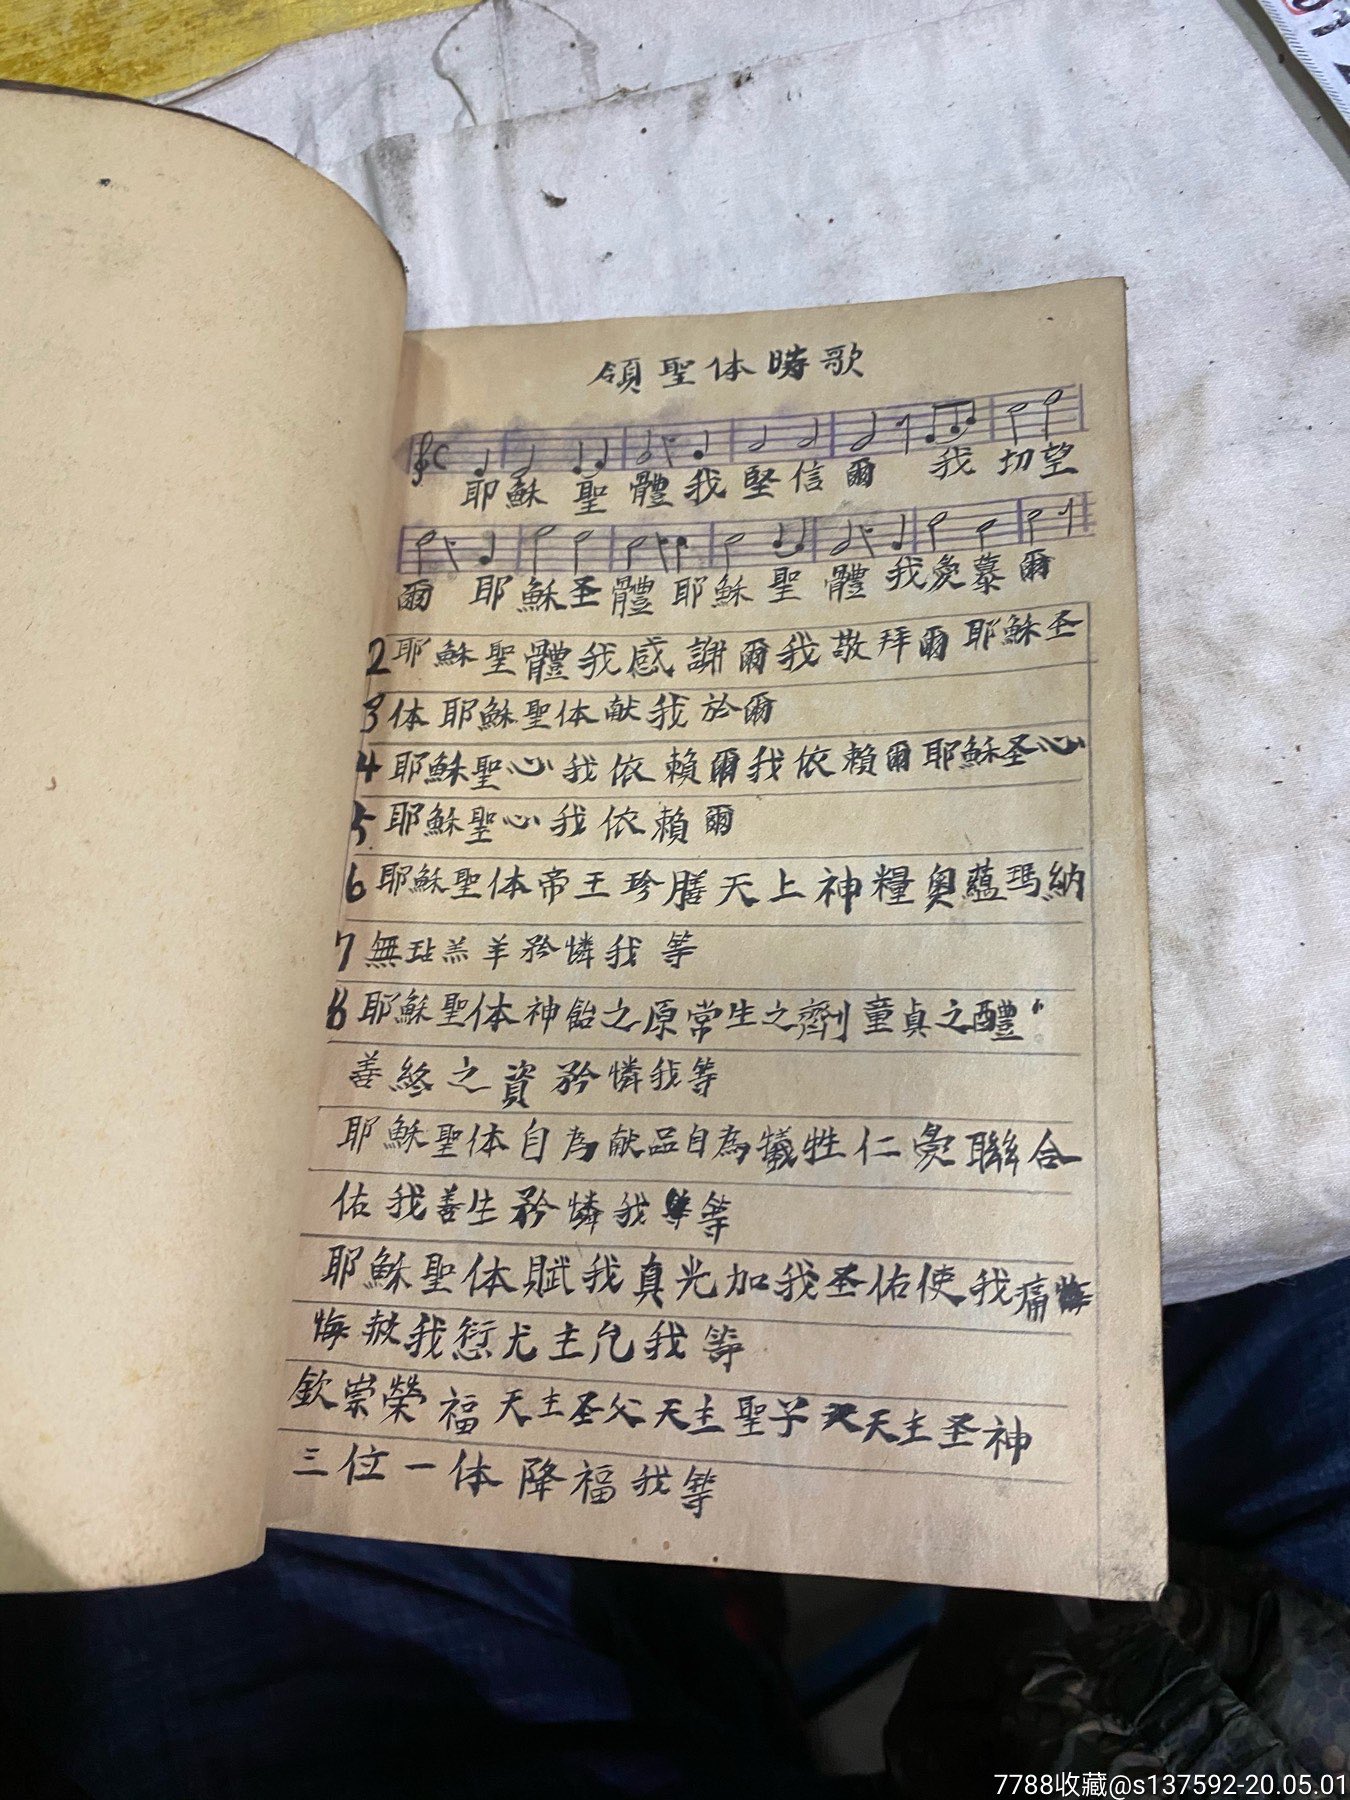 領聖体時歌
耶穌聖體我堅信爾 我切望
爾 耶穌圣體耶穌聖體我愛慕爾
2耶穌聖體我感謝爾我敬拜爾耶穌圣
3体耶穌聖体献我於爾
4耶穌聖心我依賴爾我依賴爾耶穌圣心
5耶穌聖心我依賴爾
6耶穌聖体帝王珍膳天上神糧奥蘊瑪納
7無玷羔羊矜憐我等
8耶穌聖体神飴之原常生之劑童貞之醴
善終之資矜憐我等
耶穌聖体自為献品自為犠牲仁愛聯合
佑我善生矜憐我等
耶穌聖体賦我真光加我圣佑使我痛
悔赦我愆尤主免我等
欽崇榮福天主圣父天主聖子天主圣神
三位一体降福我等
7788收藏@s137592-20.05.01